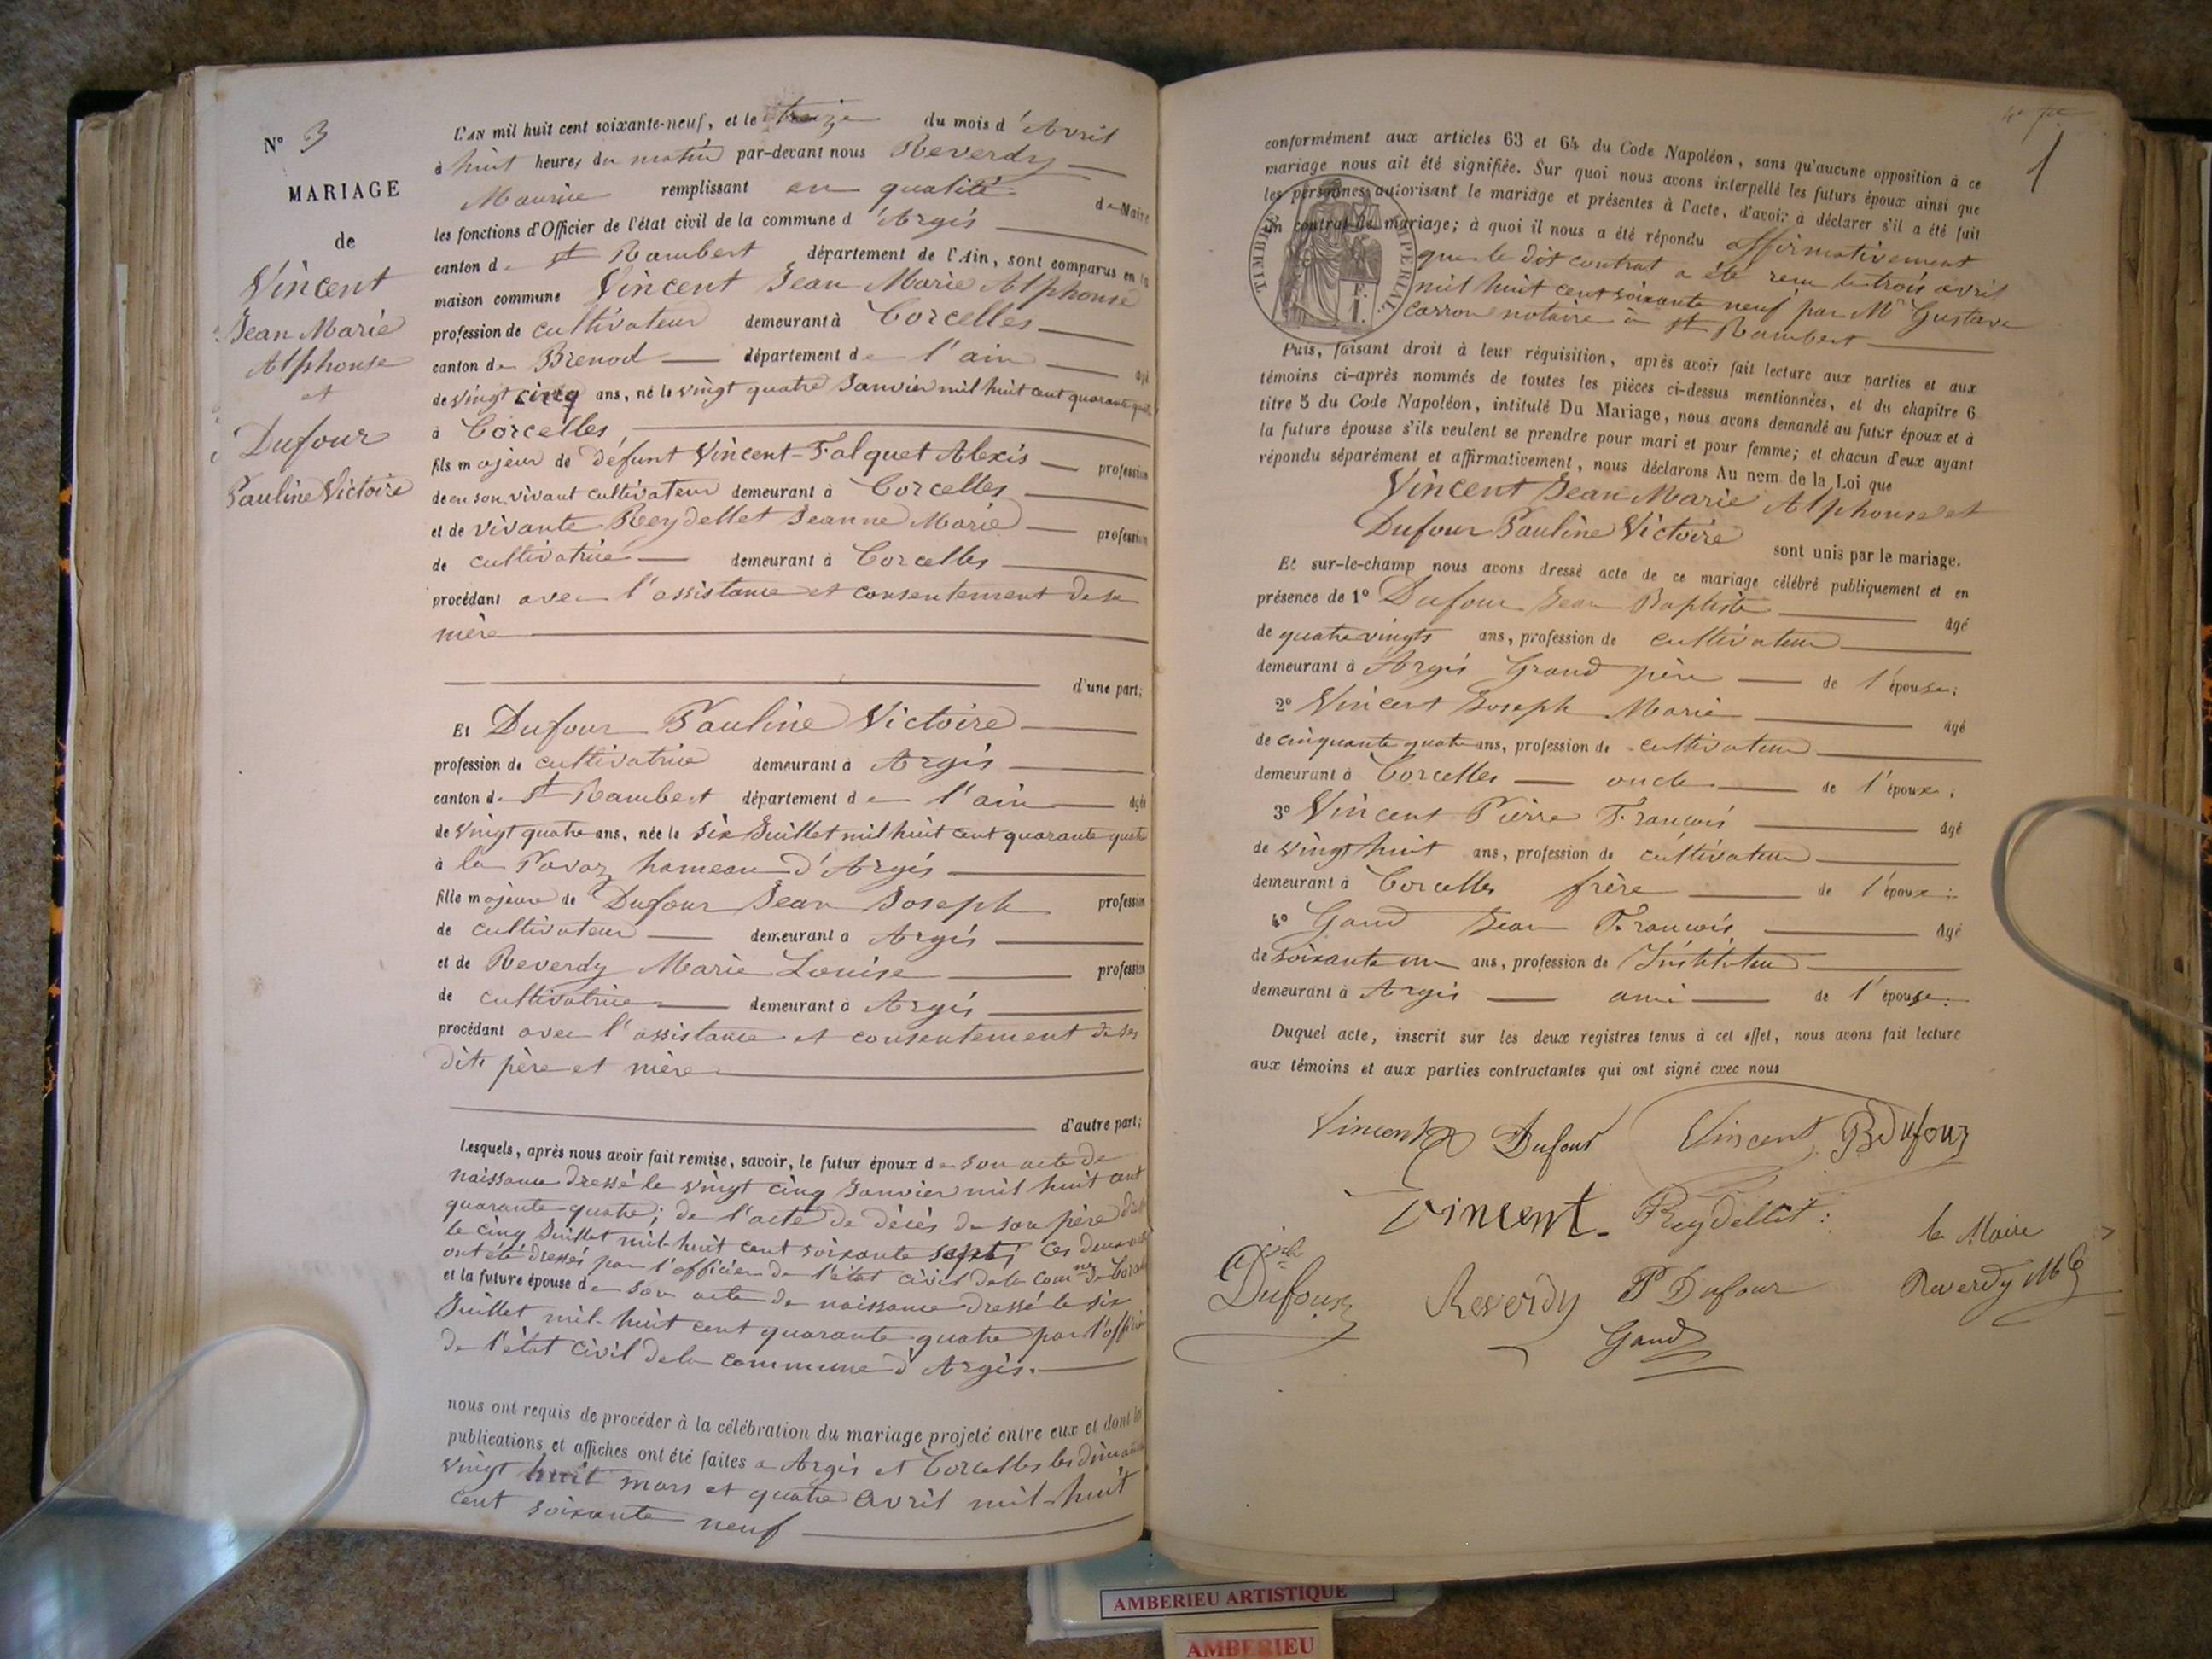 N° 3
MARIAGE
de
Vincent
Jean Marie
Alphonse
et
Dufour
Pauline Victoire
L'AN mil huit cent soixante-neuf, et le treize du mois d'Avril
à huit heures du matin par-devant nous Reverdy
Maurice remplissant en qualité de Maire
les fonctions d'Officier de l'état civil de la commune d'Argis
canton de St Rambert département de l'Ain, sont comparus en la
maison commune Vincent Jean Marie Alphonse
profession de cultivateur demeurant à Corcelles
canton de Brenod département de l'ain agé
de vingt cinq ans, né le vingt quatre Janvier mil huit cent quarante quatre
à Corcelles
fils majeur de défunt Vincent-Falquet Alexis profession
de en son vivant cultivateur demeurant à Corcelles
et de vivante Reydellet Jeanne Marie profession
de cultivatrice demeurant à Corcelles
procédant avec l'assistance et consentement de sa
mère
d'une part;
Et Dufour Pauline Victoire
profession de cultivatrice demeurant à Argis
canton de St Rambert département de l'ain agée
de vingt quatre ans, née le six Juillet mil huit cent quarante quatre
à la Pavaz hameau d'Argis
fille majeure de Dufour Jean Joseph profession
de cultivateur demeurant a Argis
et de Reverdy Marie Louise profession
de cultivatrice demeurant à Argis
procédant avec l'assistance et consentement de ses
dits père et mère
d'autre part;
Lesquels, après nous avoir fait remise, savoir, le futur époux de son acte de
naissance dressé le vingt cinq Janvier mil huit cent
quarante quatre; de l'acte de décès de son père
le cinq Juillet mil-huit cent soixante sept; ces deux
ont été dressés par l'officier de l'état civil de la comne de
et la future épouse de son acte de naissance dressé le six
Juillet mil-huit cent quarante quatre par l'officier
de l'état civil de la commune d'Argis.
nous ont requis de procéder à la célébration du mariage projeté entre eux et dont les
publications et affiches ont été faites a Argis et Corcelles les dimanches
vingt huit mars et quatre avril mil-huit
cent soixante neuf
1
conformément aux articles 63 et 64 du Code Napoléon, sans qu'aucune opposition à ce
mariage nous ait été signifiée. Sur quoi nous avons interpellé les futurs époux ainsi que
les personnes autorisant le mariage et présentes à l'acte, d'avoir à déclarer s'il a été fait
un contrat de mariage; à quoi il nous a été répondu affirmativement
que le dit contrat a été reçu le trois avril
mil huit cent soixante neuf par Me Gustave
Carron notaire à St Rambert
TIMBRE IMPERIAL
Puis, faisant droit à leur réquisition, après avoir fait lecture aux parties et aux
témoins ci-après nommés de toutes les pièces ci-dessus mentionnées, et du chapitre 6
titre 5 du Code Napoléon, intitulé Du Mariage, nous avons demandé au futur époux et à
la future épouse s'ils veulent se prendre pour mari et pour femme; et chacun d'eux ayant
répondu séparément et affirmativement, nous déclarons Au nom de la Loi que
Vincent Jean Marie Alphonse et
Dufour Pauline Victoire sont unis par le mariage.
Et sur-le-champ nous avons dressé acte de ce mariage célébré publiquement et en
présence de 1° Dufour Jean Baptiste agé
de quatre vingts ans, profession de cultivateur
demeurant à Argis Grand père de l'épouse;
2° Vincent Joseph Marie agé
de cinquante quatre ans, profession de cultivateur
demeurant à Corcelles oncle de l'époux;
3° Vincent Pierre François agé
de vingt huit ans, profession de cultivateur
demeurant à Corcelles frère de l'époux;
4° Gand Jean François agé
de soixante un ans, profession de Instituteur
demeurant à Argis ami de l'épouse.
Duquel acte, inscrit sur les deux registres tenus à cet effet, nous avons fait lecture
aux témoins et aux parties contractantes qui ont signé avec nous
Vincent Dufour Vincent Dufour
Vincent Reydellet
le Maire
Dufour Reverdy P Dufour Reverdy
Gand
AMBERIEU ARTISTIQUE
AMBERIEU